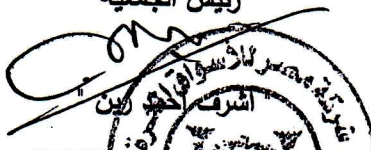 رئيس الجمعية
" أشرف أحمد زين "
شركة مصر للأسواق الحرة